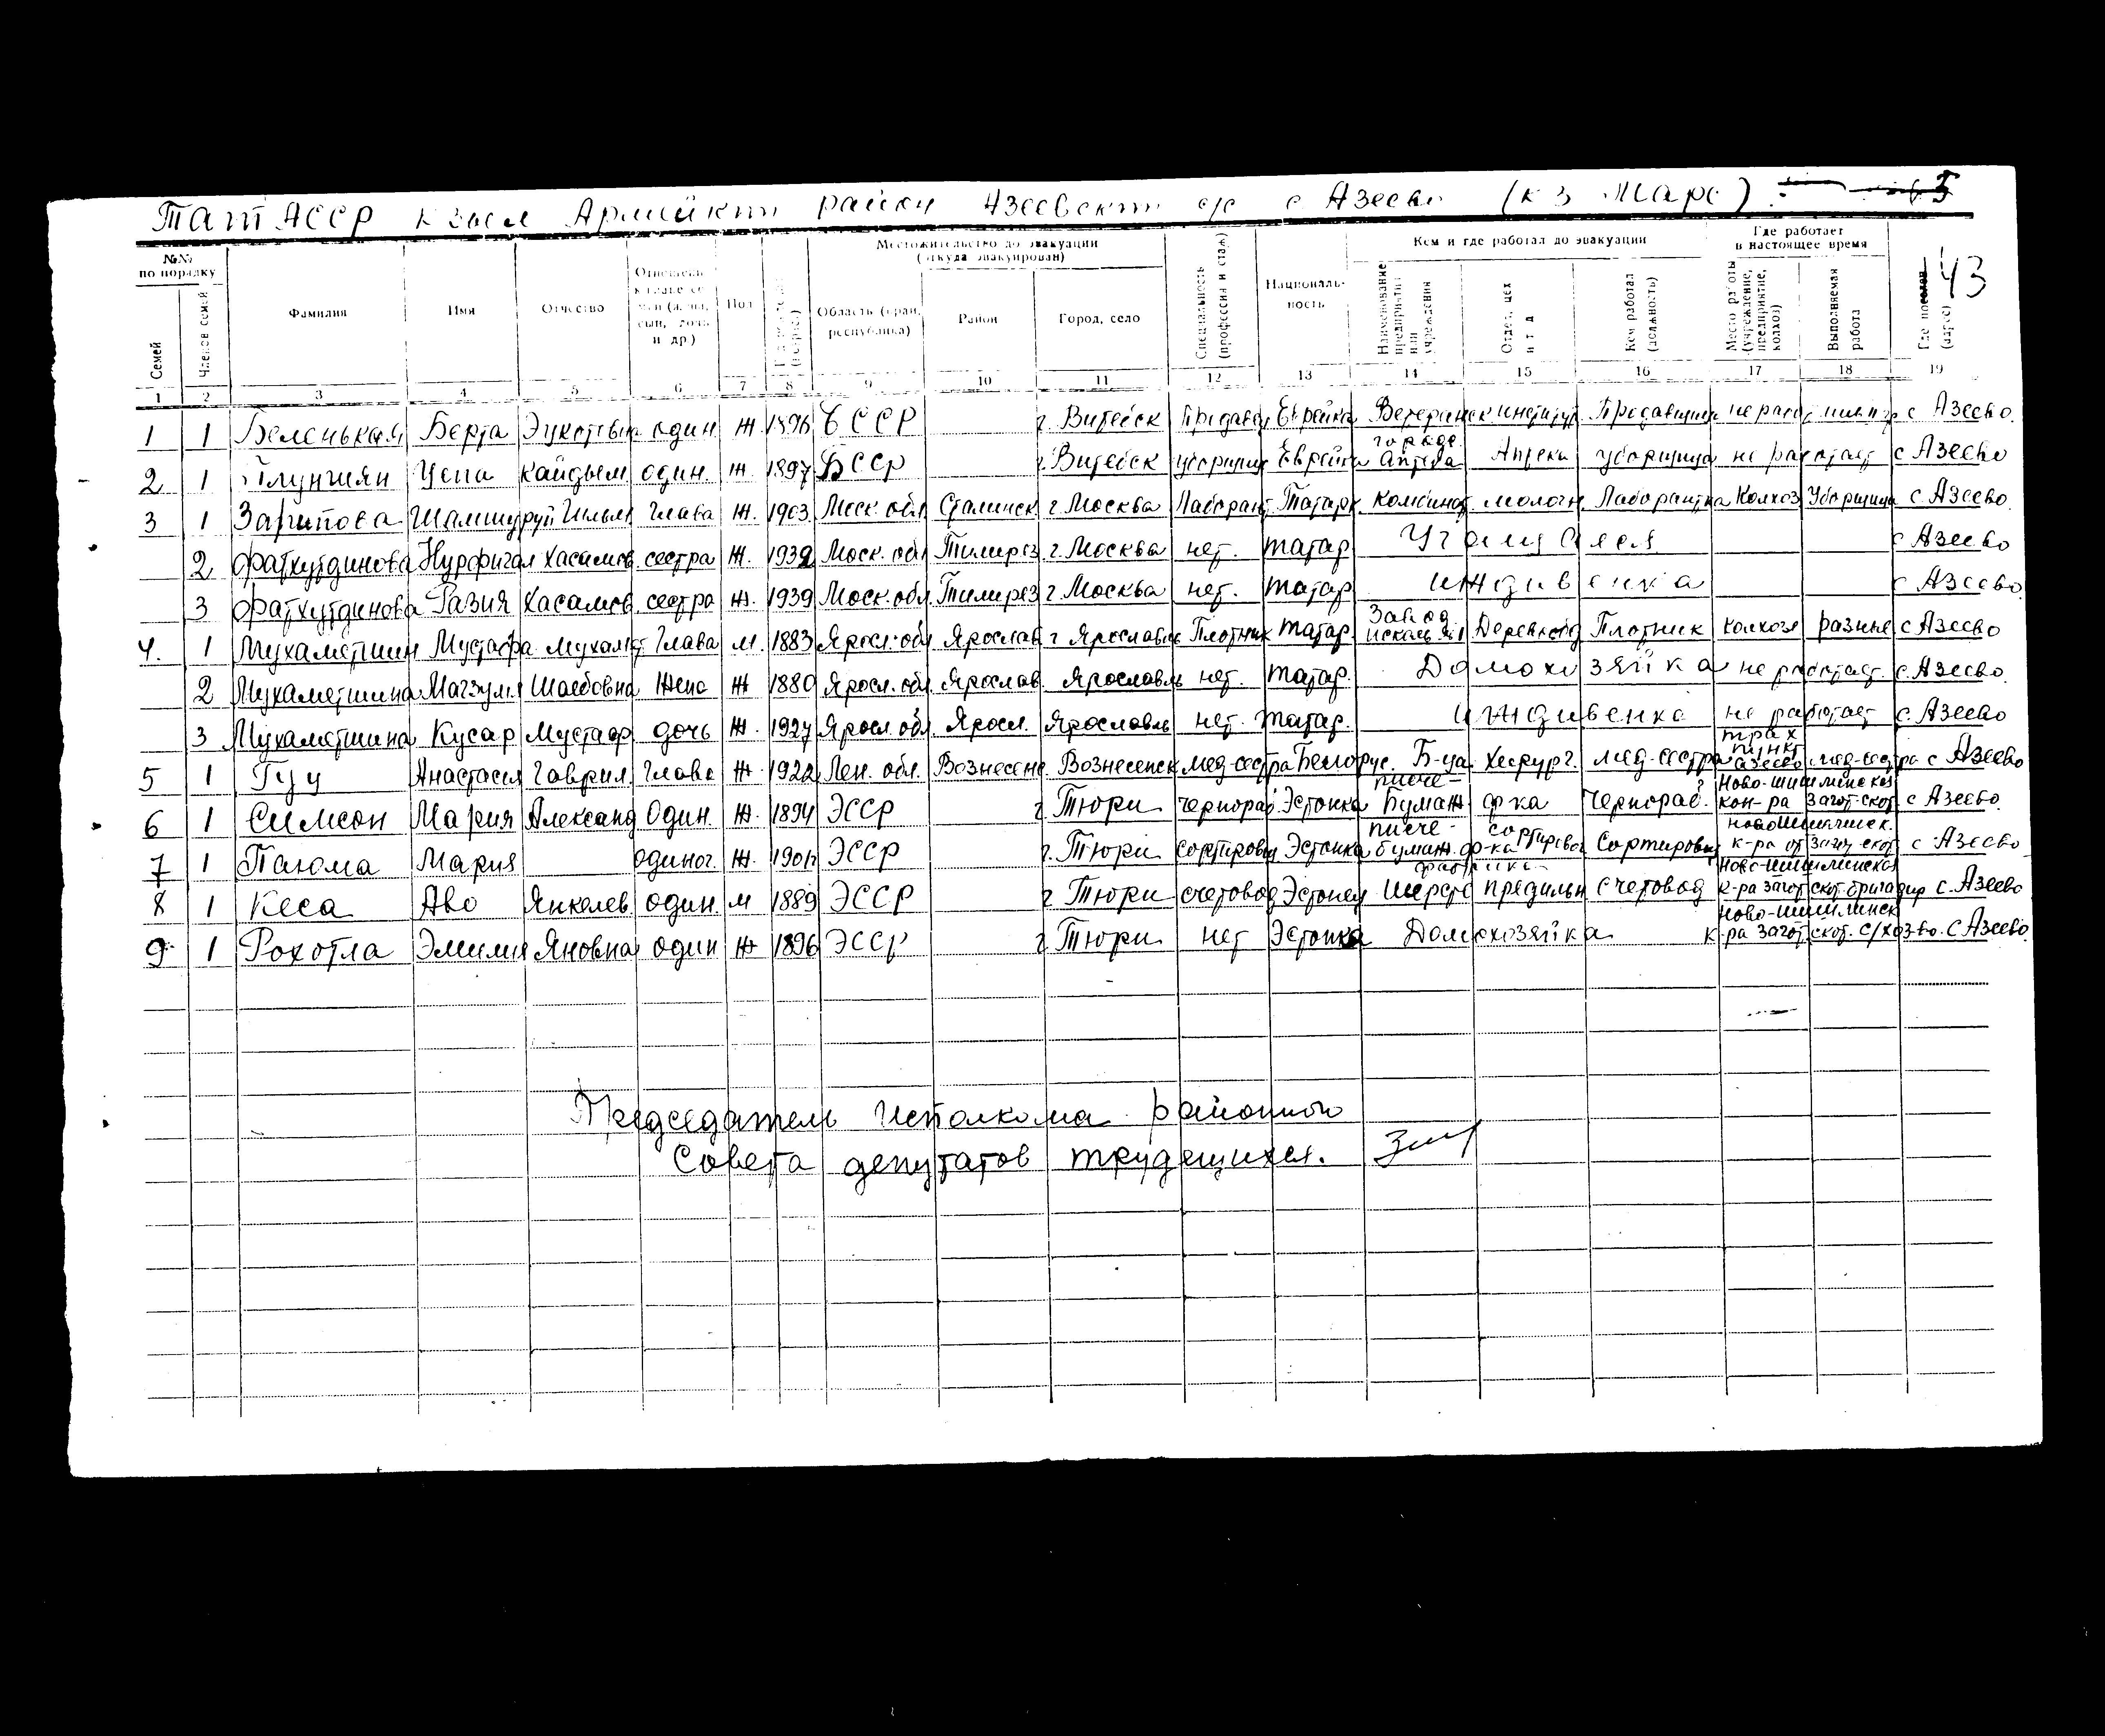 ТатАССР Армейкт район Азеевский с/с с Азеево (к з Марс) 5
143
№№ по порядку
Семей
Членов семей
Фамилия
Имя
Отчество
Отношение к главе семьи (жена, сын, дочь и др.)
Пол
Местожительство до эвакуации (откуда эвакуирован)
Область (край, республика)
Район
Город, село
Специальность (профессия и стаж)
Националь-ность
Кем и где работал до эвакуации
Наименование предприятия или учреждения
Отдел, цех и т д
Кем работал (должность)
Где работает в настоящее время
Место работы (учреждение, предприятие, колхоз)
Выполняемая работа
Где поселен (адрес)
1 2 3 4 5 6 7 8 9 10 11 12 13 14 15 16 17 18 19
1 1 Беленькая Берта один. Ж. 1896 БССР г. Витебск Еврейка Ветерин институт Продавщица с Азеево.
2 1 один. Ж. 1897 БССР г. Витебск уборщиц Еврейка городс. Аптека Аптека уборщица не работает с Азеево
3 1 Зарипова Глава Ж. 1903 Моск. обл Сталинск г. Москва Лаборант Татарк. Комбинат молочн. Лаборантка Колхоз Уборщица с. Азеево
2 Фатхутдинова Хасанов. сестра Ж. 1932 Моск. обл Тимиряз г. Москва нет. татар Учащаяся с Азеево
3 Фатхутдинова Разия Хасанов сестра Ж. 1939 Моск. обл. Тимиряз г. Москва нет. татар иждивенка с Азеево
4. 1 Мухаметшин Мустафа Мухамет Глава М. 1883 Яросл. обл Ярослав г Ярославль Плотник татар Завод Деревообд Плотник колхозе разные с Азеево
2 Мухаметшина Шаебовна Жена Ж 1880 Яросл. обл Ярослав Ярославль нет. татар. Домохозяйка не работает. с. Азеево.
3 Мухаметшина Кусар Мустаф дочь Ж. 1927 Яросл. обл. Яросл. Ярославль нет. татар. иждивенка не работает с. Азеево
5 1 Анастасия Гаврил. Глава Ж. 1922 Лен. обл. Вознесенс Вознесенск мед-сестра Белорус. Б-ца Хирург. мед-сестра трах пункт Азеево мед-сестра с Азеево
6 1 Симсон Мария Александ Один. Ж. 1894 ЭССР г Тюри чернораб Эстонка писче-бумаж ф-ка Чернораб. Ново-шишминская кон-ра Загот-скот с Азеево.
7 1 Паюма Мария одиног. Ж. 1901 ЭССР г. Тюри сортировщ Эстонка писче-бумаж. ф-ка сортиров Сортировщ Новошишминск. к-ра от Загот-скот с Азеево
8 1 Кеса Аво Янкелев. один. М 1889 ЭССР г Тюри счетовод Эстонец фабрика Шерсто прядильн счетовод Ново-шишминская к-ра Загот скот. бригадир с. Азеево
9 1 Рохотла Эмилия Яновна один Ж 1896 ЭССР г Тюри нет Эстонка Домохозяйка Ново-шишминск к-ра Загот скот. с/хоз-во. с Азеево.
Председатель Исполкома районного
Совета депутатов трудящихся.